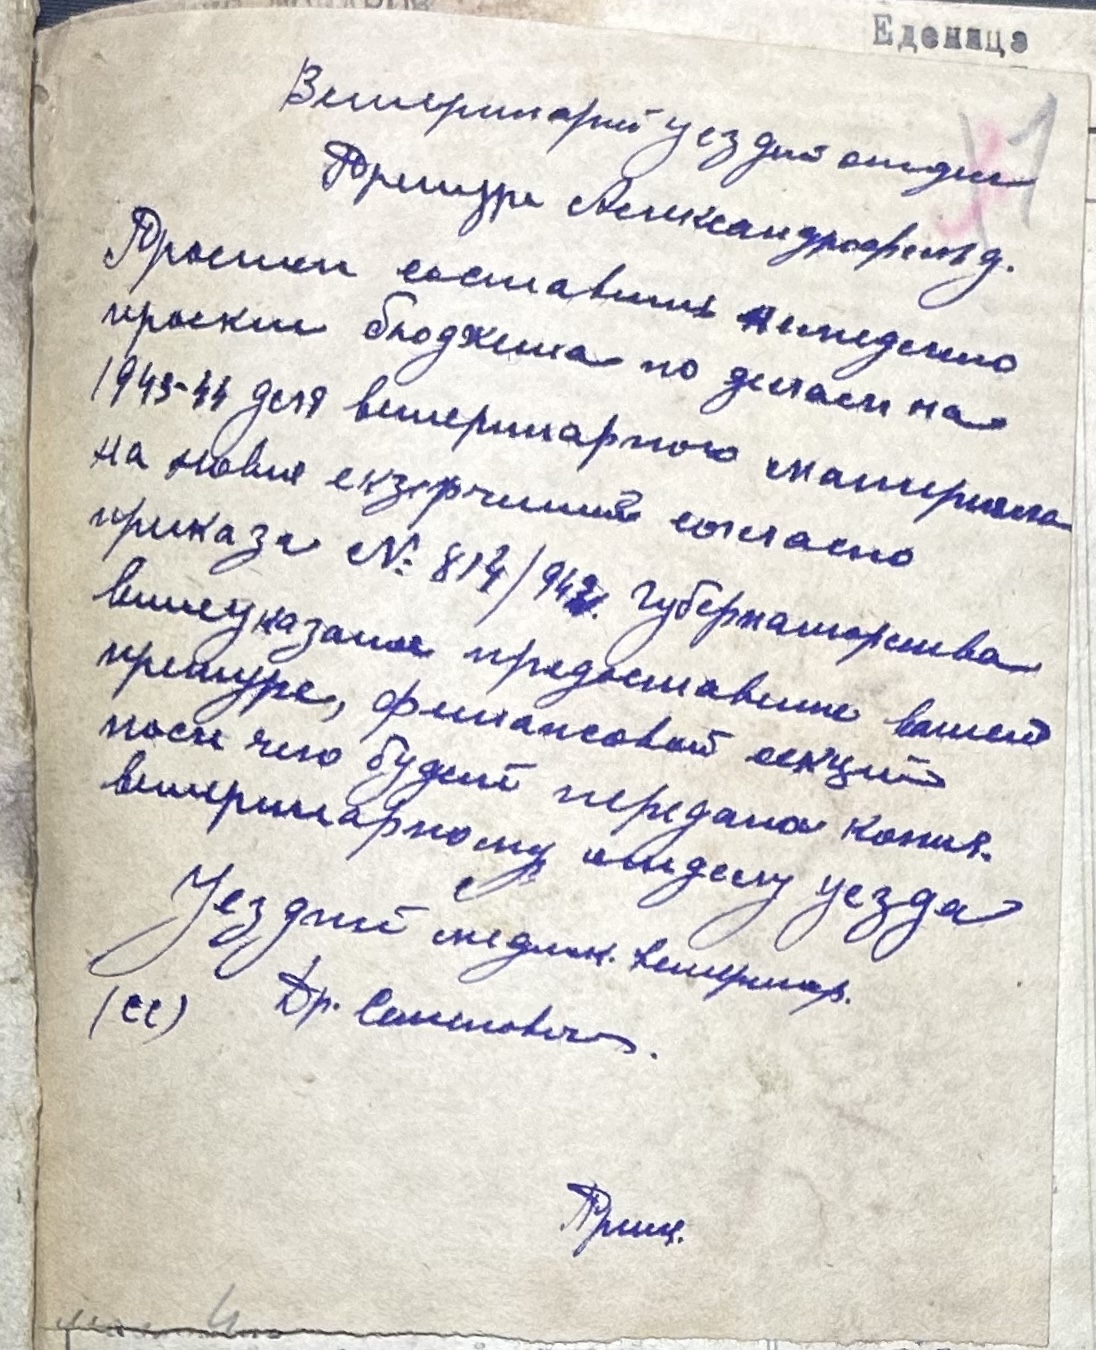 Еденице
Ветеринарий уездий отдел
Претуре Александрофельд.
Просим составит немедлено
проект бюджета по делам на
1943-44 для ветеринарного материяла
на новие екзерчиций согласно
приказа № 814/942. Губернаторства
вишеуказаное предоставите вашей
претуре, финансовой секций
после чего будет передана копия.
ветеринарному отделу уезда
Уездний медик. ветеринар.
(сс) Др. Семенович.